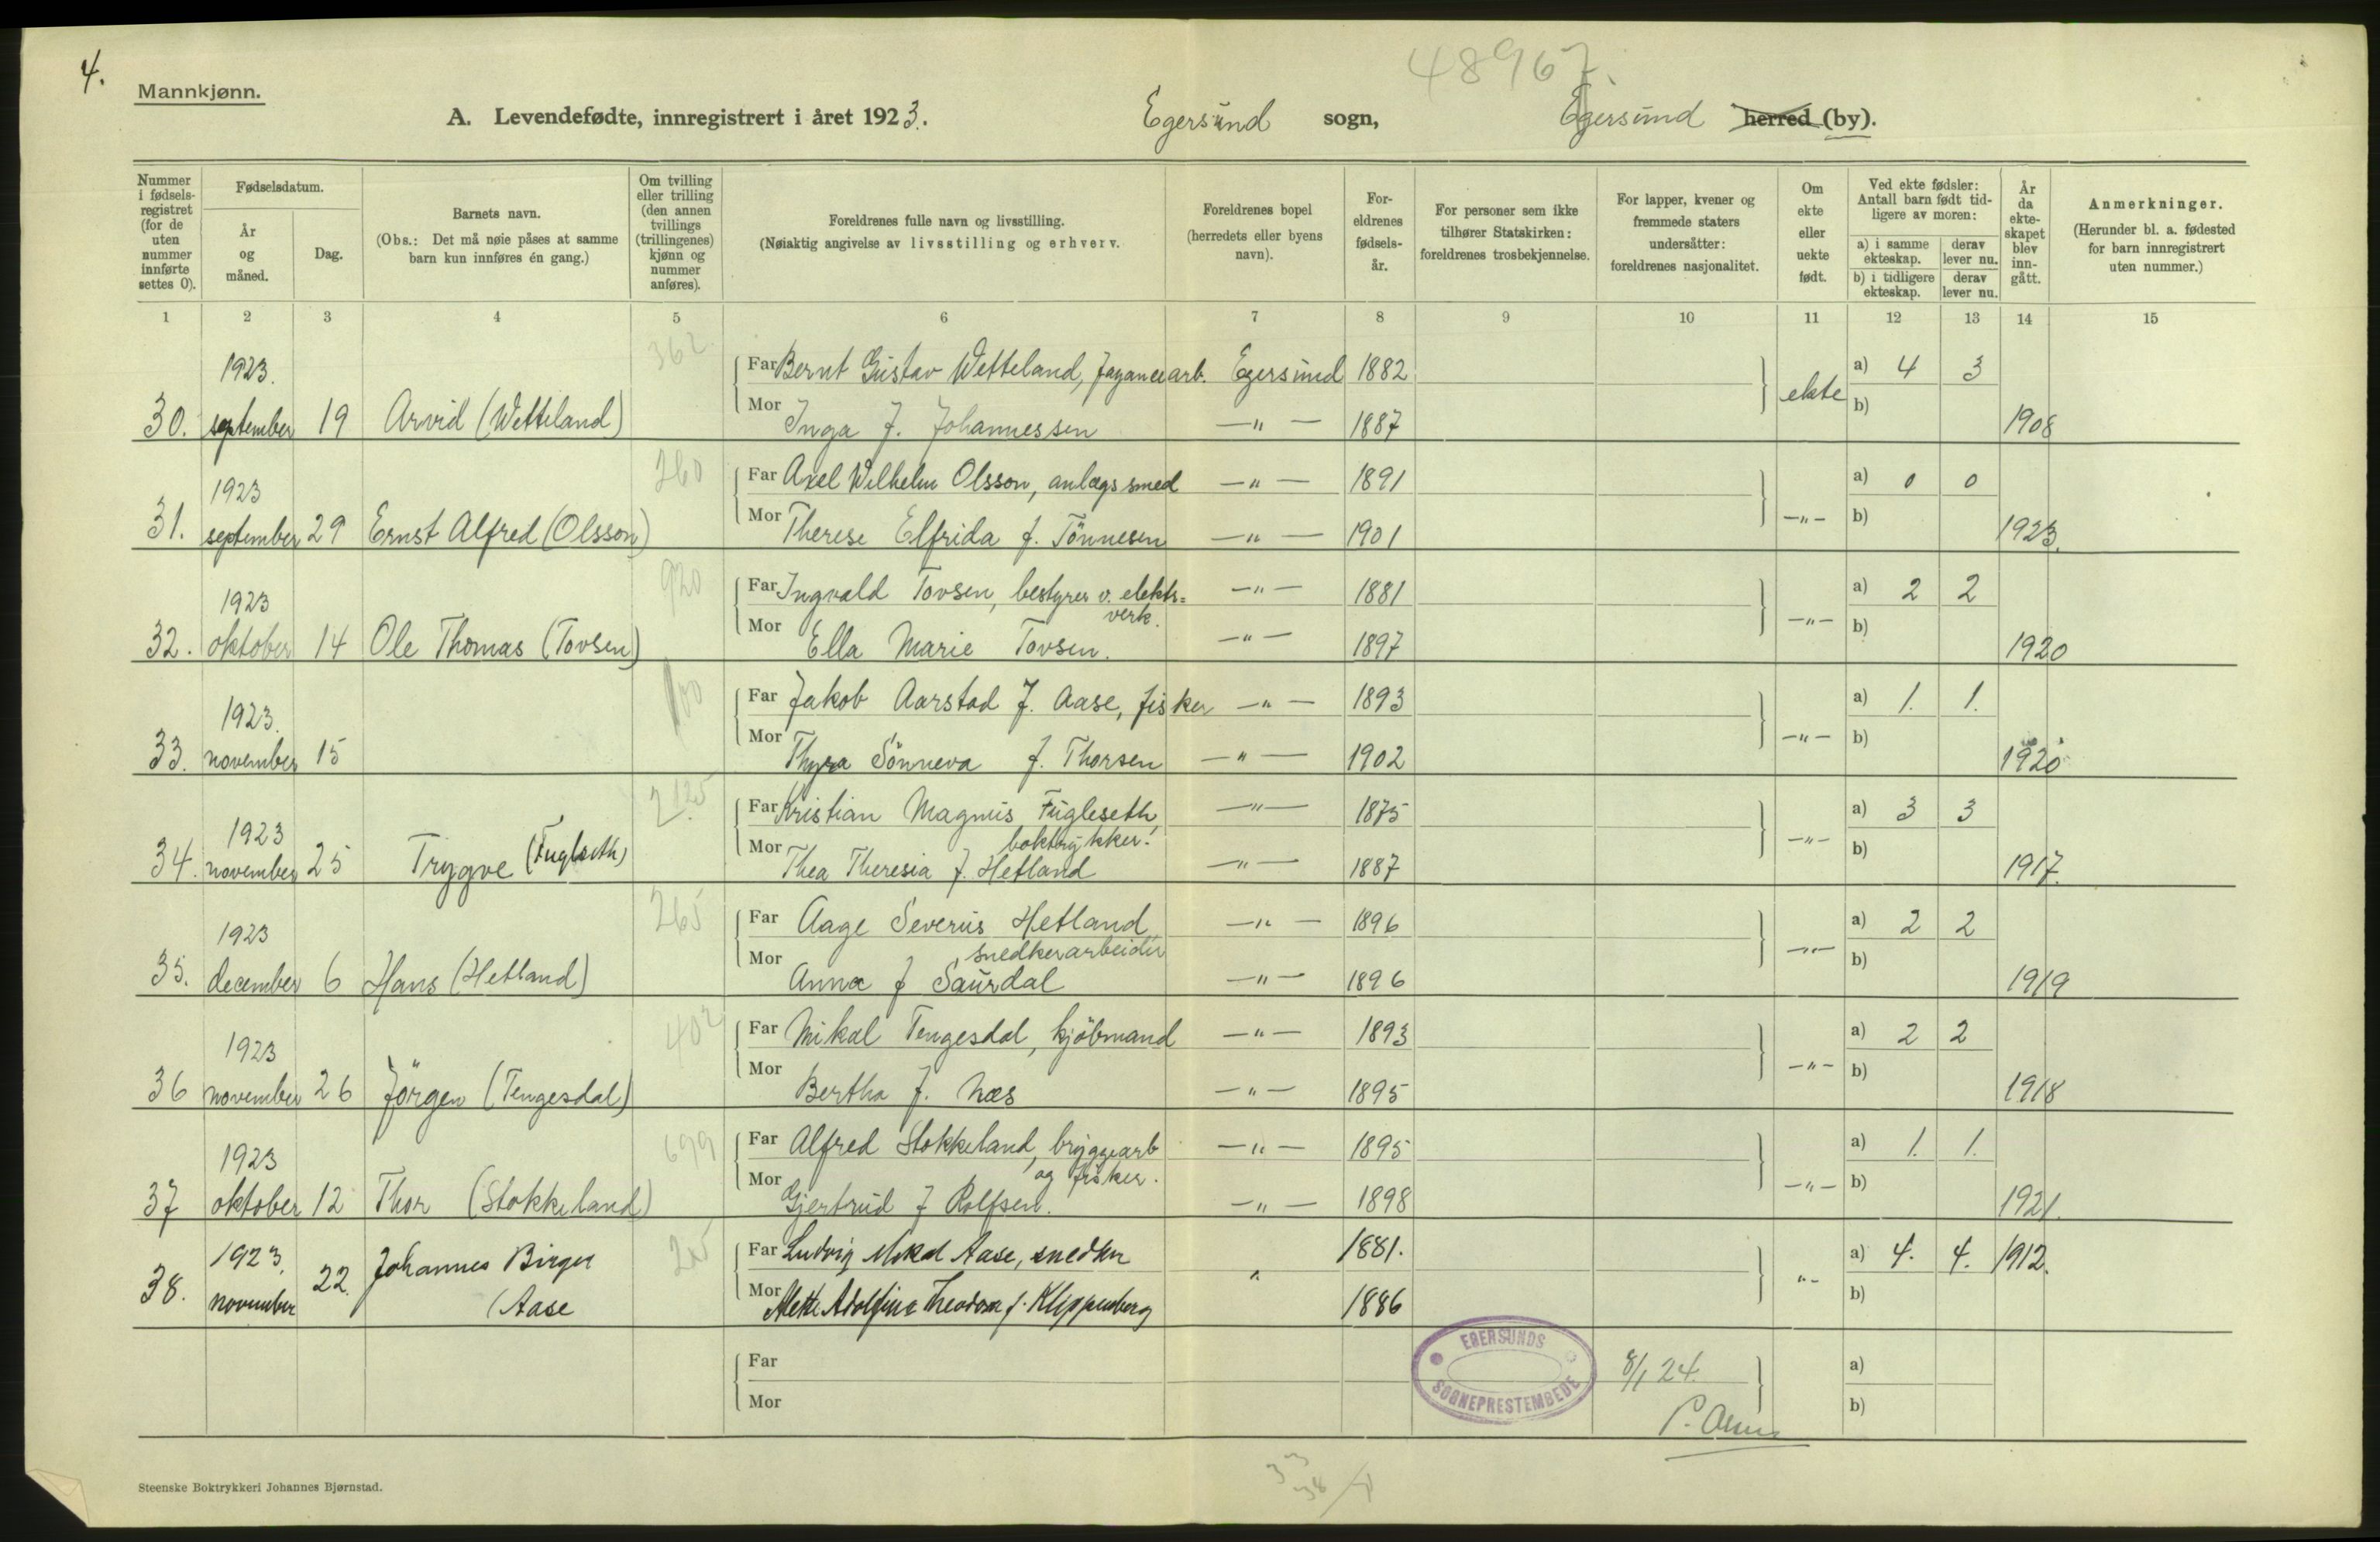 4.
48967.
Mannkjønn.
A. Levendefødte, innregistrert i året 1923. Egersund sogn, Egersund herred (by).
Nummer i fødselsregistret (for de uten nummer innførte settes 0).
Fødselsdatum.
År og måned.
Dag.
Barnets navn.
(Obs.: Det må nøie påses at samme barn kun innføres én gang.)
Om tvilling eller trilling (den annen tvillings (trillingenes) kjønn og nummer anføres).
Foreldrenes fulle navn og livsstilling.
(Nøiaktig angivelse av livsstilling og erhverv.
Foreldrenes bopel (herredets eller byens navn).
Foreldrenes fødselsår.
For personer som ikke tilhører Statskirken: foreldrenes trosbekjennelse.
For lapper, kvener og fremmede staters undersåtter: foreldrenes nasjonalitet.
Om ekte eller uekte født.
Ved ekte fødsler: Antall barn født tidligere av moren:
a) i samme ekteskap. derav lever nu.
b) i tidligere ekteskap. derav lever nu.
År da ekteskapet blev inngått.
Anmerkninger.
(Herunder bl. a. fødested for barn innregistrert uten nummer.)
1 2 3 4 5 6 7 8 9 10 11 12 13 14 15
362
30. 1923. september 19 Arvid (Wetteland)
Far Bernt Gustav Wetteland, fayancearb. Egersund 1882 ekte a) 4 3
Mor Inga f. Johannessen —"— 1887 b) 1908
260
31. 1923 september 29 Ernst Alfred (Olsson)
Far Axel Wilhelm Olsson, anlægssmed —"— 1891 —"— a) 0 0
Mor Therese Elfrida f. Tönnesen —"— 1901 b) 1923.
920
32. 1923 oktober 14 Ole Thomas (Tovsen)
Far Ingvald Tovsen, bestyrer v. elektr= verk. —"— 1881 —"— a) 2 2
Mor Ella Marie Tovsen. —"— 1897 b) 1920
100
33. 1923. november 15
Far Jakob Aarstad J. Aase, fisker —"— 1893 —"— a) 1. 1.
Mor Thyra Sönneva f. Thorsen —"— 1902 b) 1920
34. 1923 november 25 Trygve (Fugleseth)
Far Kristian Magnus Fugleseth, boktrykker. —"— 1875 —"— a) 3 3
Mor Thea Theresia f. Hetland —"— 1887 b) 1917.
265
35. 1923 december 6 Hans (Hetland)
Far Aage Severus Hetland, snedkerarbeider —"— 1896 —"— a) 2 2
Mor Anna f Saurdal —"— 1896 b) 1919
402
36 1923 november 26 Jörgen (Tengesdal)
Far Mikal Tengesdal, kjöbmand —"— 1893 —"— a) 2 2
Mor Bertha f. Næs —"— 1895 b) 1918
699
37 1923 oktober 12 Thor (Stokkeland)
Far Alfred Stokkeland, bryggearb og fisker. —"— 1895 —"— a) 1. 1.
Mor Gjertrud f Rolfsen. —"— 1898 b) 1921.
38. 1923. november 22. Johannes Birger (Aase
Far Ludvig Mikal Aase, snedker " 1881. "- a) 4. 4. 1912.
Mor Mette Adolfine Theodora f. Klippenberg 1886 b)
Far a)
Mor b)
EGERSUNDS SOGNEPRESTEMBEDE
8/1 24.
Steenske Boktrykkeri Johannes Bjørnstad.